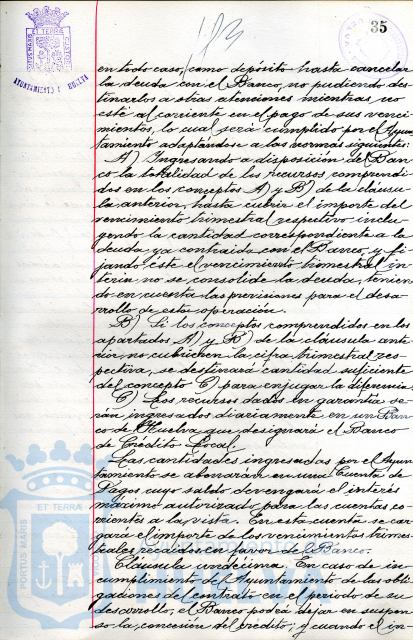 35
AYUNTAMIENTO HUELVA
en todo caso, como depósito hasta cancelar
la deuda con el Banco, no pudiendo des-
tinarlos a otras atenciones mientras no
esté al corriente en el pago de sus venci-
mientos, lo cual será cumplido por el Ayun-
tamiento adaptándose a las normas siguientes:
A) Ingresando a disposición del Ban-
co la totalidad de los recursos comprendi-
dos en los conceptos A) y B) de la cláusu-
la anterior, hasta cubrir el importe del
vencimiento trimestral respectivo inclu-
yendo la cantidad correspondiente a la
deuda ya contraida con el Banco, y fi-
jando éste el vencimiento trimestral in-
terin no se consolide la deuda, tenien-
do en cuenta las previsiones para el desa-
rrollo de esta operación.
B) Si los conceptos comprendidos en los
apartados A) y B) de la cláusula ante-
rior, no cubriesen la cifra trimestral res-
pectiva, se destinará cantidad suficiente
del concepto C) para enjugar la diferencia.
C) Los recursos dados en garantía se-
rán ingresados diariamente en un Ban-
co de Huelva que designará el Banco
de Crédito Local.
Las cantidades ingresadas por el Ayun-
tamiento se abonarán en una Cuenta de
Pagos cuyo saldo devengará el interés
máximo autorizado para las cuentas co-
rrientes a la vista. En esta cuenta se car-
gará el importe de los vencimientos trimes-
trales recaidos en favor del Banco.
Cláusula undécima. En caso de in-
cumplimiento del Ayuntamiento de las obli-
gaciones del contrato en el período de su
desarrollo, el Banco podrá dejar en suspen-
so la concesión del crédito; y cuando el in-
PORTUS MARIS ET TERRAE